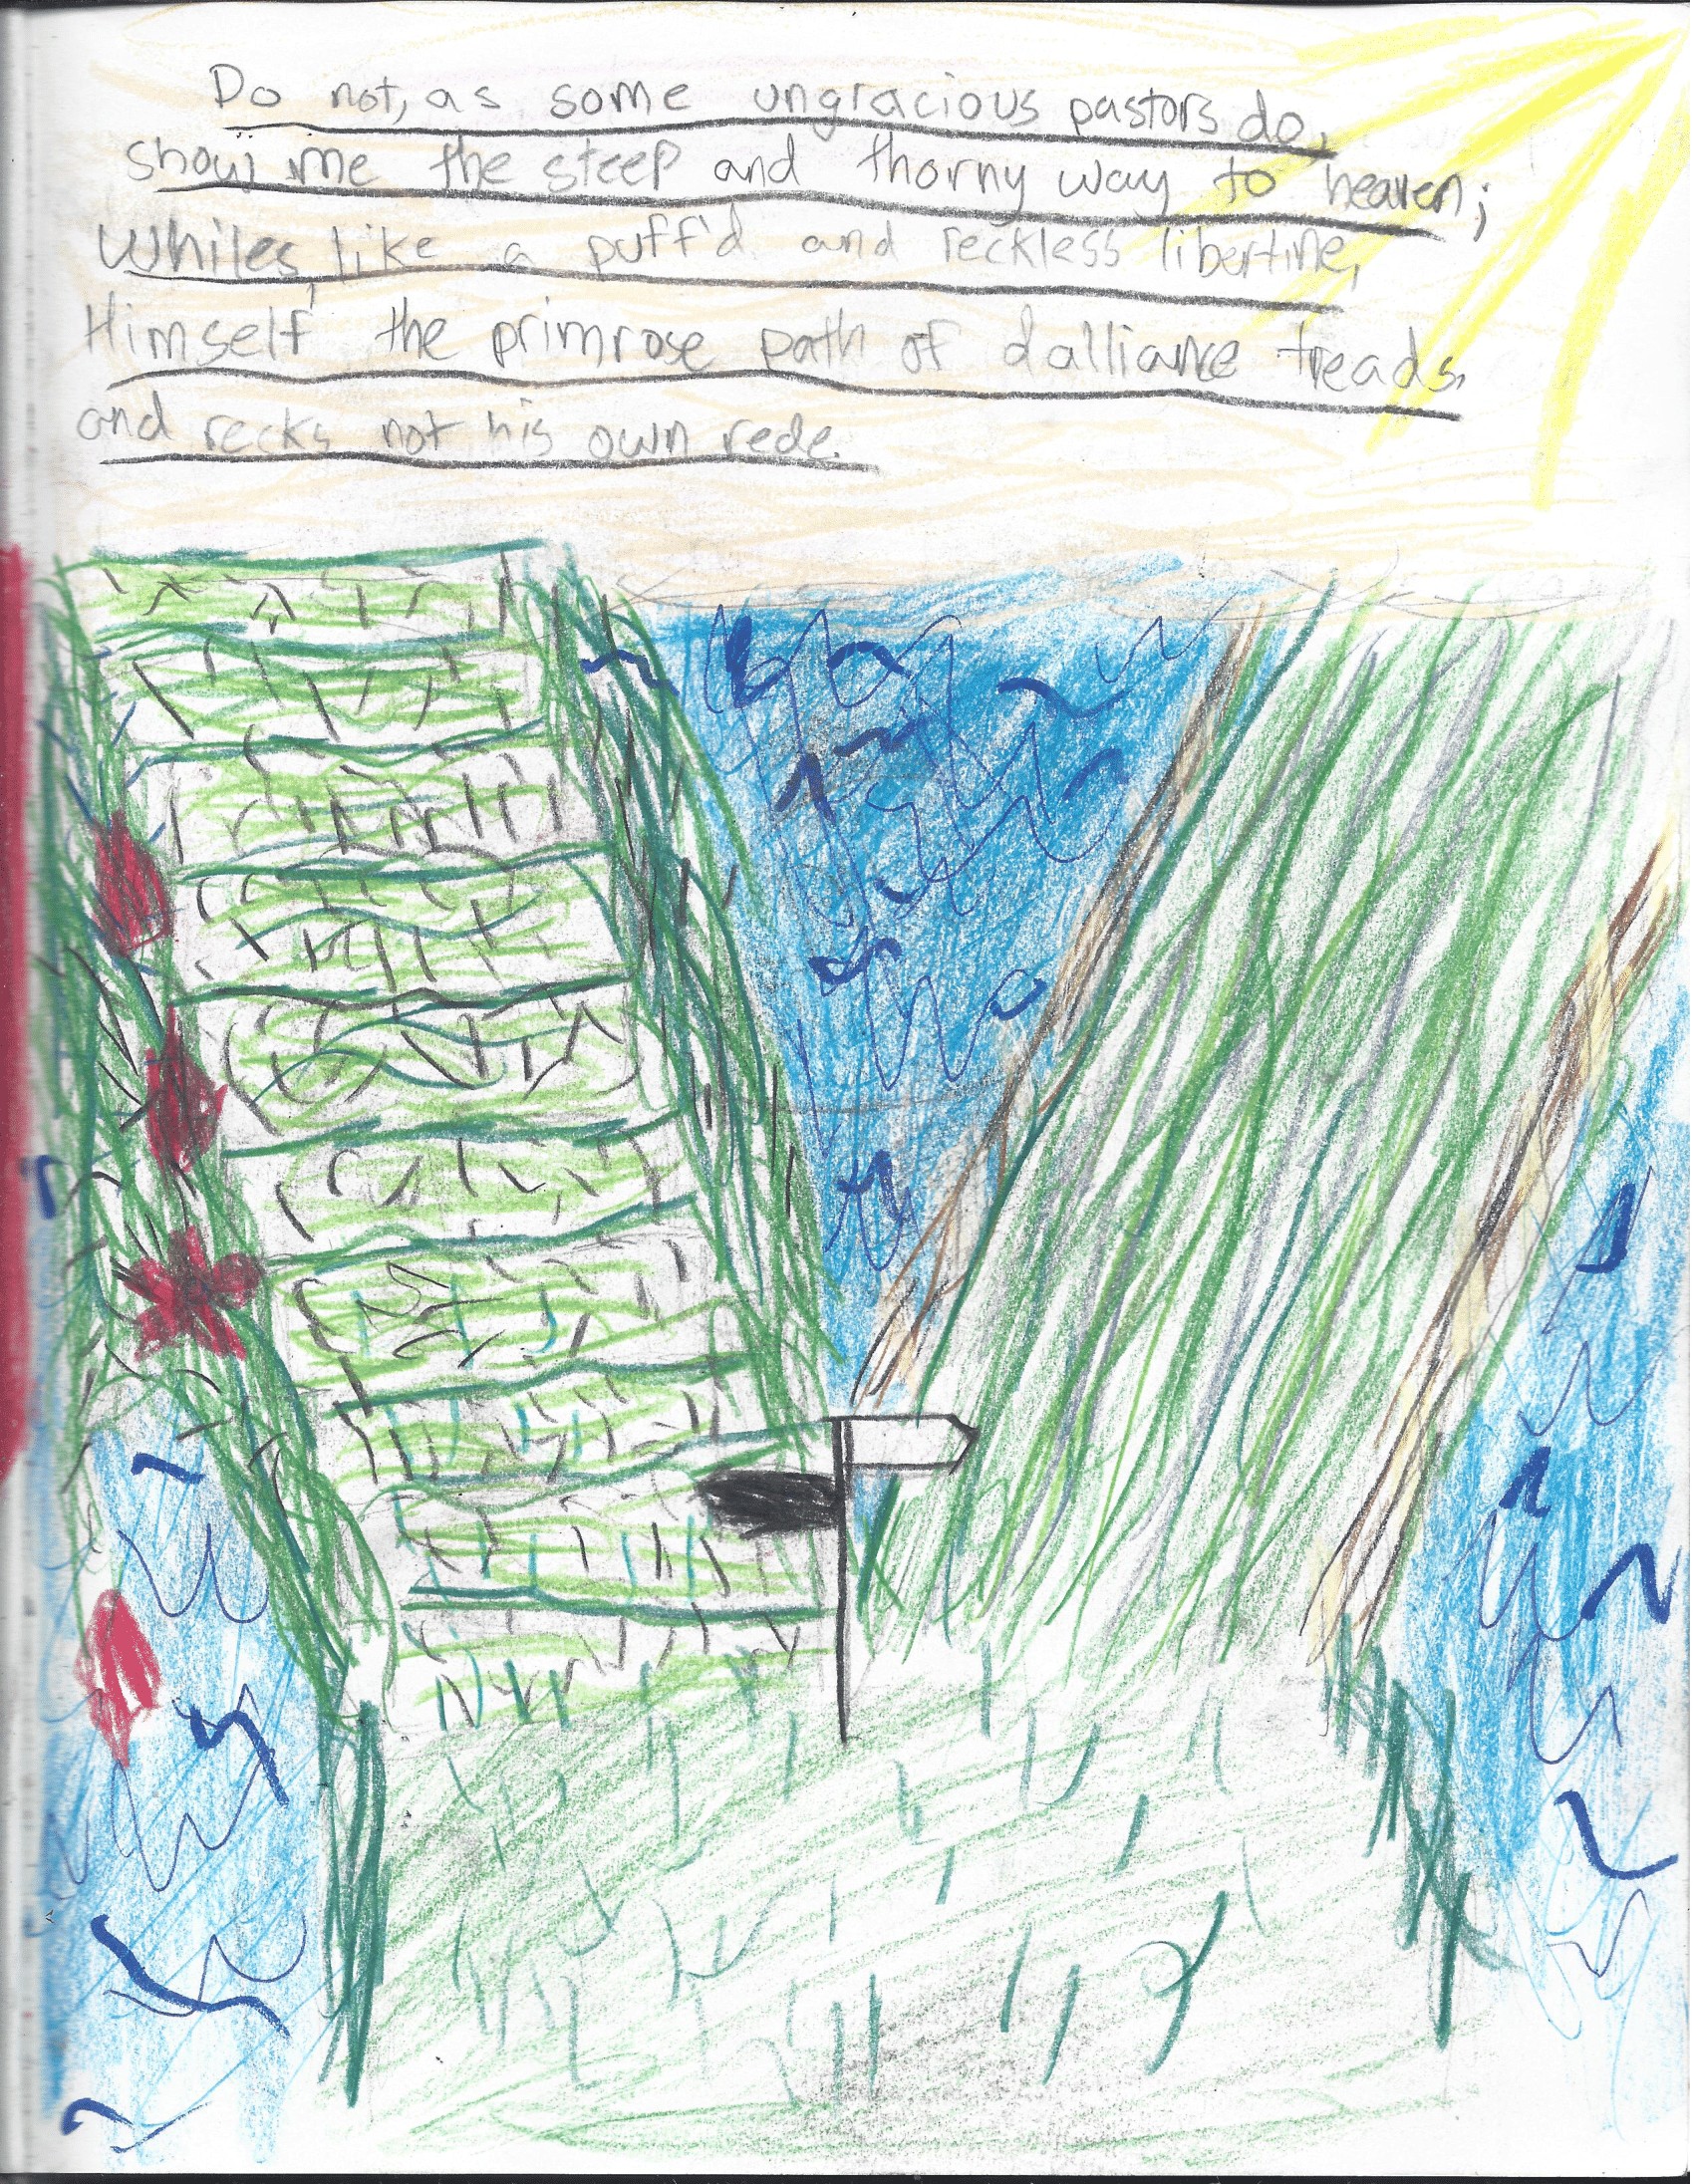 Do not, as some ungracious pastors do,
show me the steep and thorny way to heaven;
Whiles, like a puff'd and reckless libertine,
Himself the primrose path of dalliance treads,
and recks not his own rede.